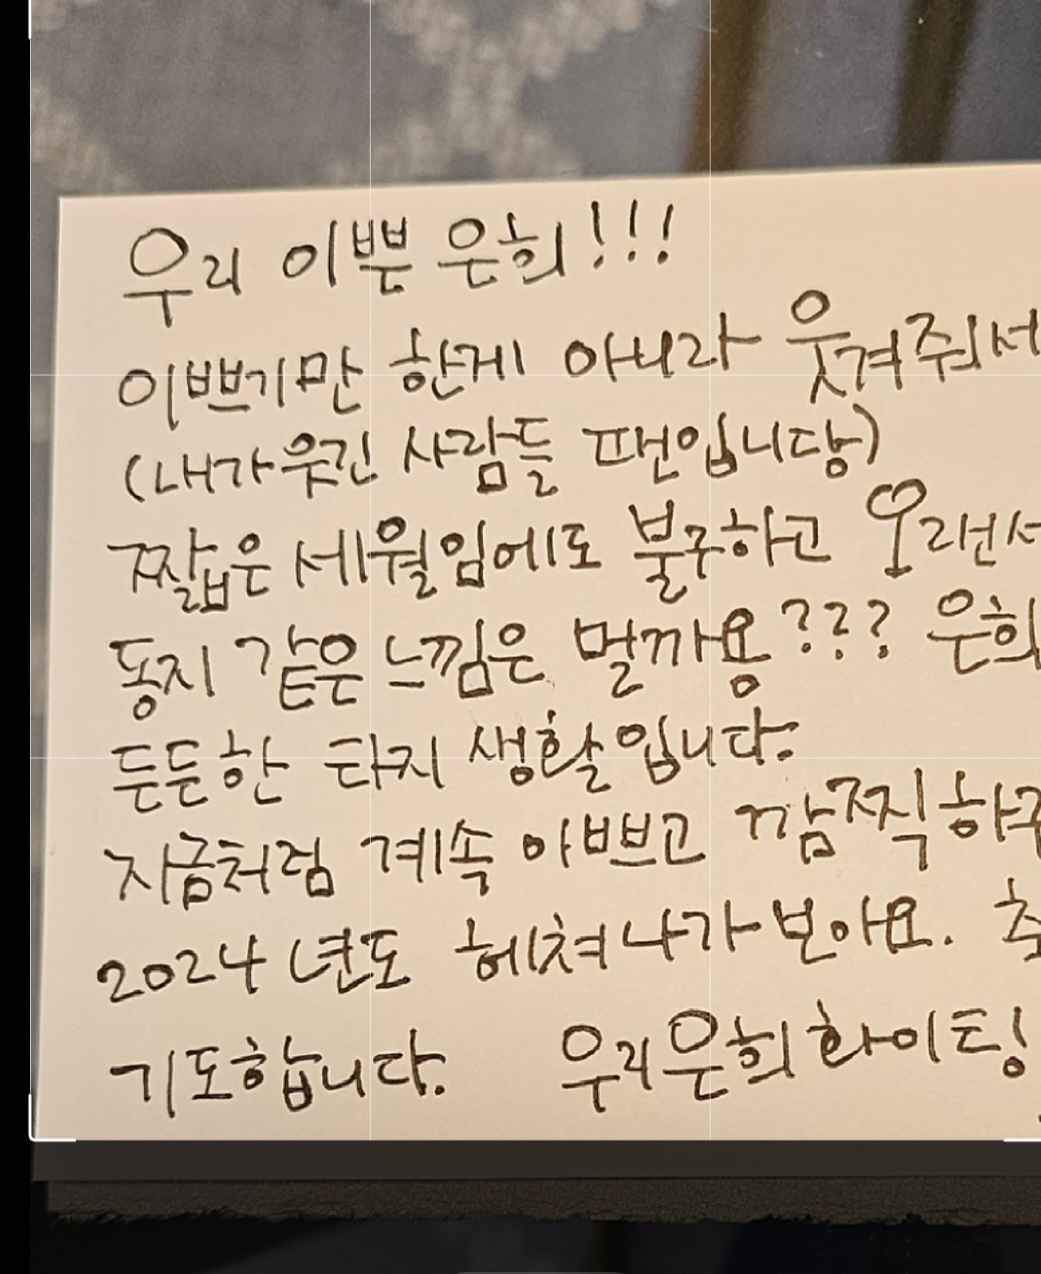 우리 이쁜 은희!!!
이쁘기만 한게 아니라 웃겨줘서
(내가웃긴 사람들 팬입니당)
짧은 세월임에도 불구하고 오랜
동지 같은 느낌은 멀까용??? 은희
든든한 타지 생활입니다.
지금처럼 계속 아쁘고 깜찍하
2024년도 헤쳐나가보아요.
기도합니다. 우리은희화이팅